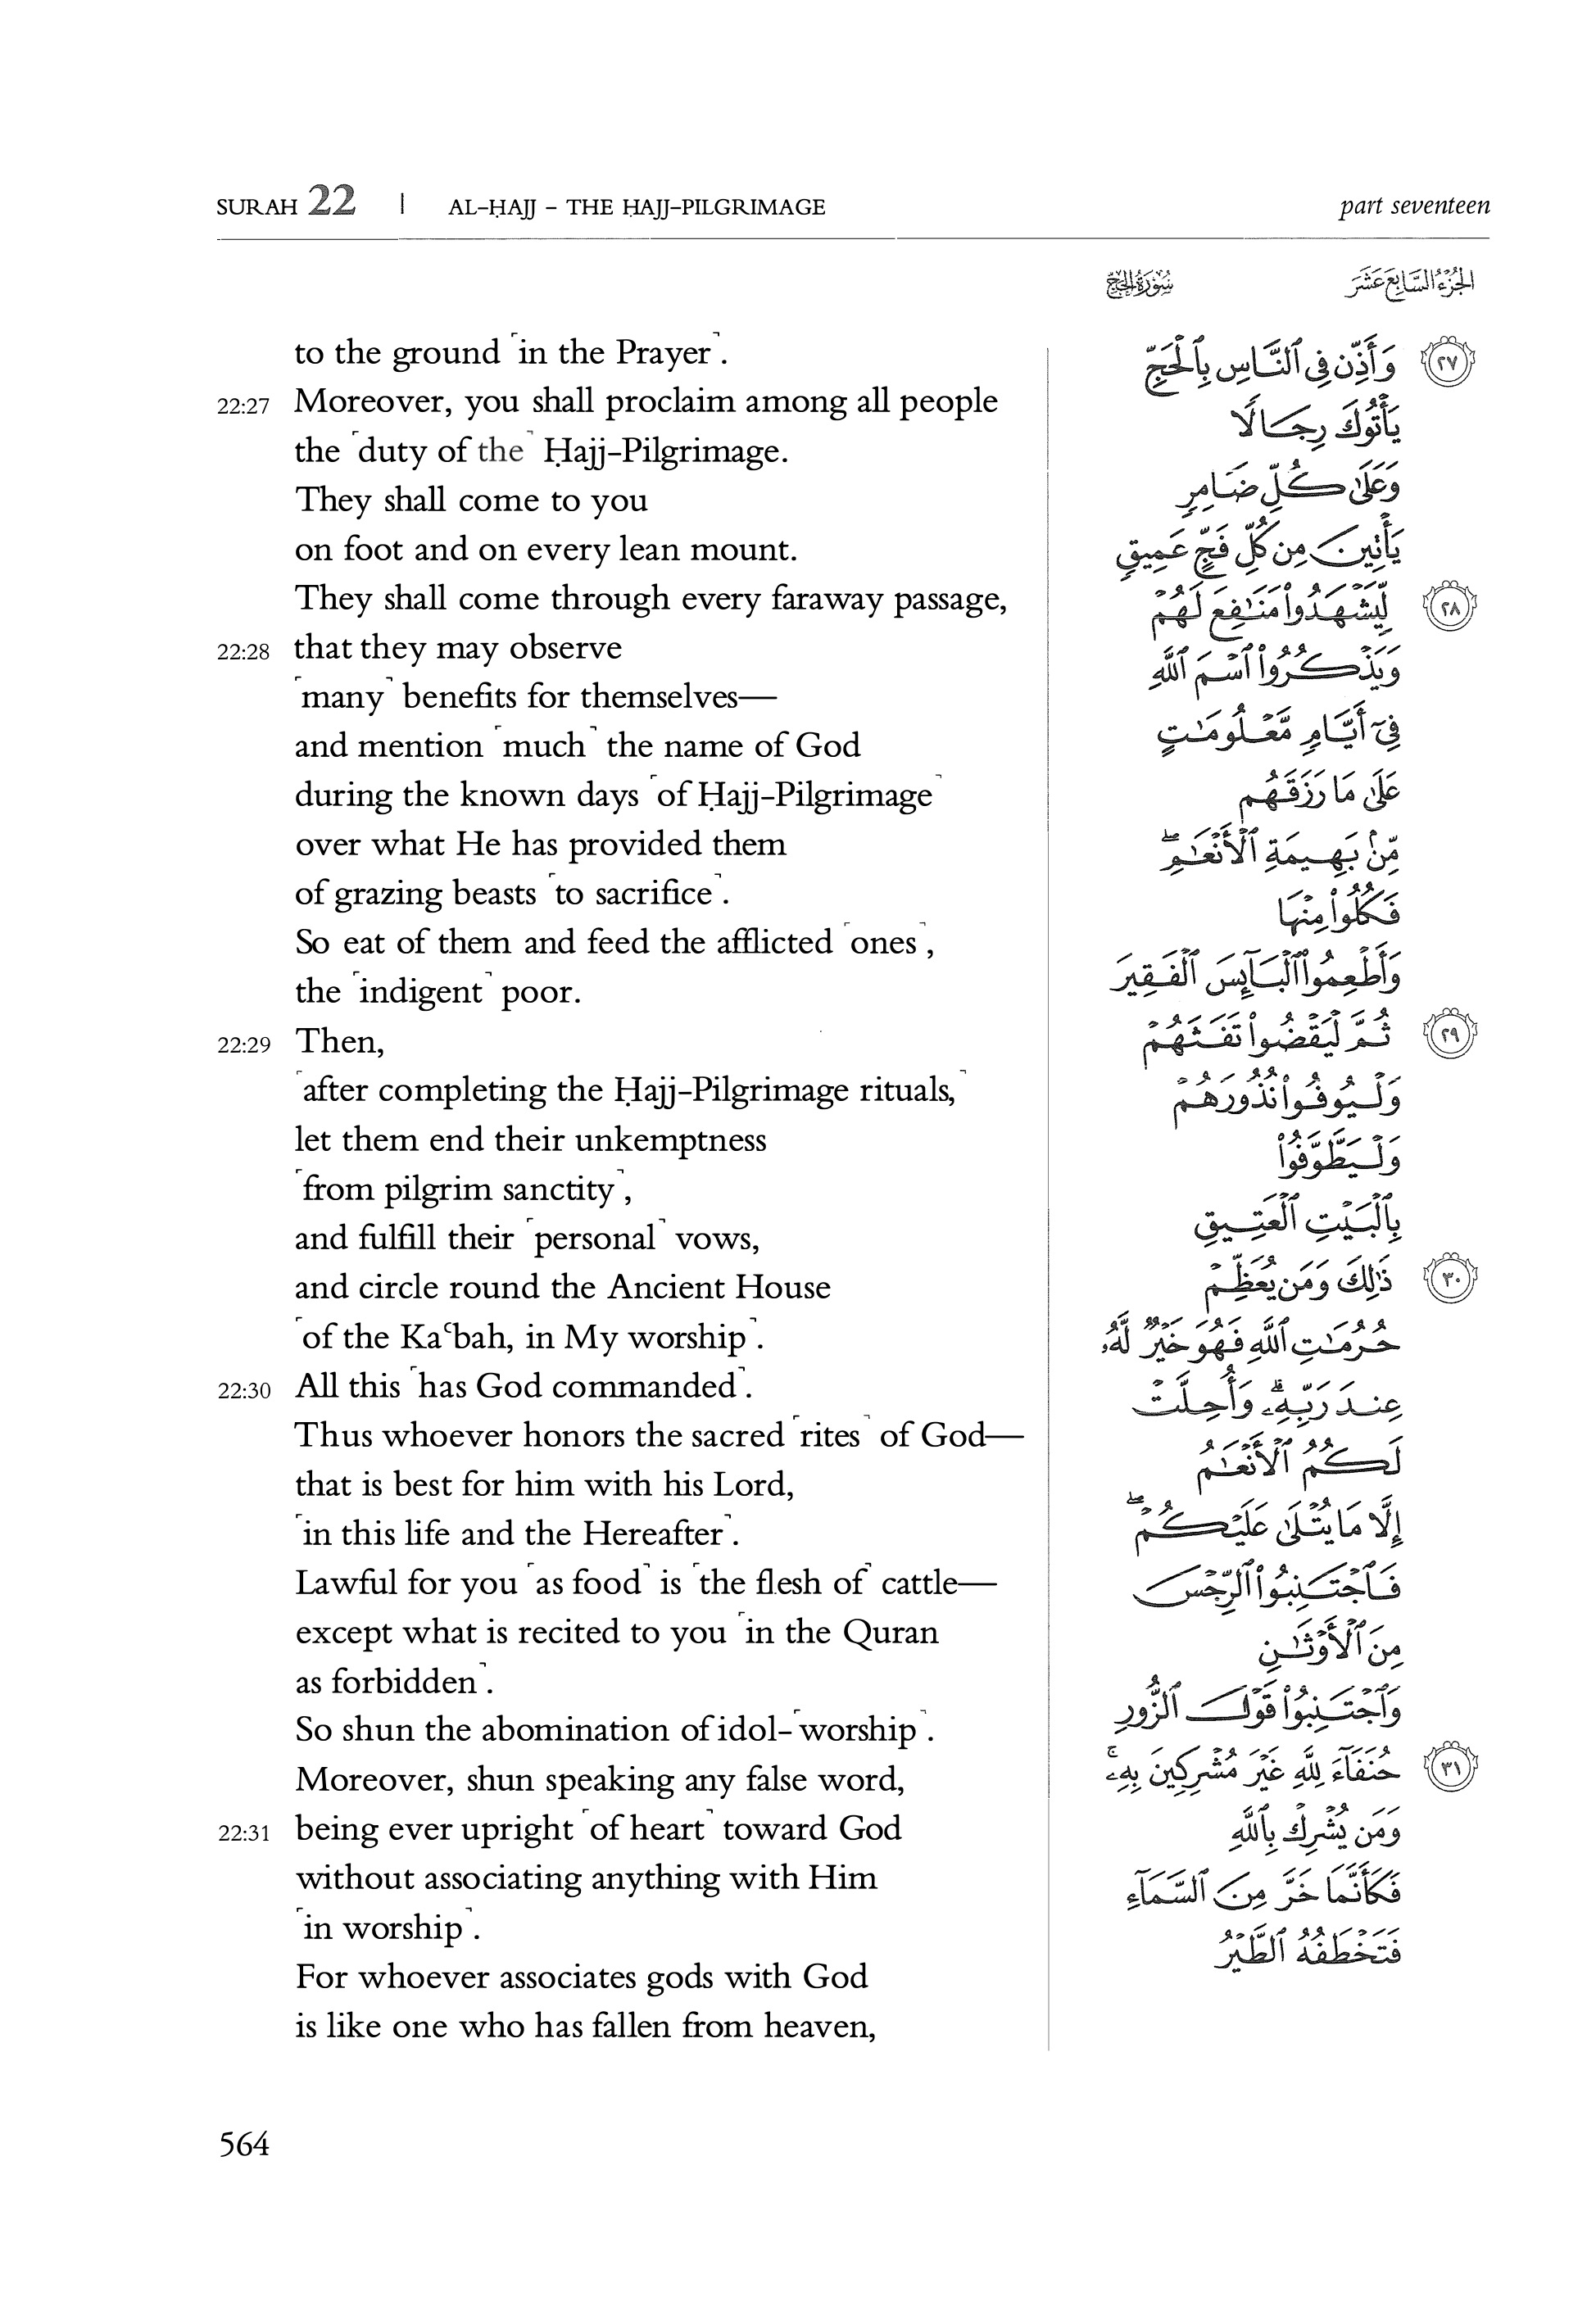 SURAH 22 | AL-ḤAJJ – THE ḤAJJ-PILGRIMAGE part seventeen
سُورَةُ الحَجّ الجُزْءُ السَّابِعَ عَشَرَ
to the ground ⌜in the Prayer⌝.
22:27 Moreover, you shall proclaim among all people
the ⌜duty of the⌝ Ḥajj-Pilgrimage.
They shall come to you
on foot and on every lean mount.
They shall come through every faraway passage,
22:28 that they may observe
⌜many⌝ benefits for themselves—
and mention ⌜much⌝ the name of God
during the known days ⌜of Ḥajj-Pilgrimage⌝
over what He has provided them
of grazing beasts ⌜to sacrifice⌝.
So eat of them and feed the afflicted ⌜ones⌝,
the ⌜indigent⌝ poor.
22:29 Then,
⌜after completing the Ḥajj-Pilgrimage rituals,⌝
let them end their unkemptness
⌜from pilgrim sanctity⌝,
and fulfill their ⌜personal⌝ vows,
and circle round the Ancient House
⌜of the Kaʿbah, in My worship⌝.
22:30 All this ⌜has God commanded⌝.
Thus whoever honors the sacred ⌜rites⌝ of God—
that is best for him with his Lord,
⌜in this life and the Hereafter⌝.
Lawful for you ⌜as food⌝ is ⌜the flesh of⌝ cattle—
except what is recited to you ⌜in the Quran
as forbidden⌝.
So shun the abomination of idol-⌜worship⌝.
Moreover, shun speaking any false word,
22:31 being ever upright ⌜of heart⌝ toward God
without associating anything with Him
⌜in worship⌝.
For whoever associates gods with God
is like one who has fallen from heaven,
٢٧ وَأَذِّن فِى ٱلنَّاسِ بِٱلْحَجِّ
يَأْتُوكَ رِجَالًا
وَعَلَىٰ كُلِّ ضَامِرٍ
يَأْتِينَ مِن كُلِّ فَجٍّ عَمِيقٍ
٢٨ لِّيَشْهَدُوا۟ مَنَٰفِعَ لَهُمْ
وَيَذْكُرُوا۟ ٱسْمَ ٱللَّهِ
فِىٓ أَيَّامٍ مَّعْلُومَٰتٍ
عَلَىٰ مَا رَزَقَهُم
مِّنۢ بَهِيمَةِ ٱلْأَنْعَٰمِ ۖ
فَكُلُوا۟ مِنْهَا
وَأَطْعِمُوا۟ ٱلْبَآئِسَ ٱلْفَقِيرَ
٢٩ ثُمَّ لْيَقْضُوا۟ تَفَثَهُمْ
وَلْيُوفُوا۟ نُذُورَهُمْ
وَلْيَطَّوَّفُوا۟
بِٱلْبَيْتِ ٱلْعَتِيقِ
٣٠ ذَٰلِكَ وَمَن يُعَظِّمْ
حُرُمَٰتِ ٱللَّهِ فَهُوَ خَيْرٌ لَّهُۥ
عِندَ رَبِّهِۦ ۗ وَأُحِلَّتْ
لَكُمُ ٱلْأَنْعَٰمُ
إِلَّا مَا يُتْلَىٰ عَلَيْكُمْ ۖ
فَٱجْتَنِبُوا۟ ٱلرِّجْسَ
مِنَ ٱلْأَوْثَٰنِ
وَٱجْتَنِبُوا۟ قَوْلَ ٱلزُّورِ
٣١ حُنَفَآءَ لِلَّهِ غَيْرَ مُشْرِكِينَ بِهِۦ ۚ
وَمَن يُشْرِكْ بِٱللَّهِ
فَكَأَنَّمَا خَرَّ مِنَ ٱلسَّمَآءِ
فَتَخْطَفُهُ ٱلطَّيْرُ
564